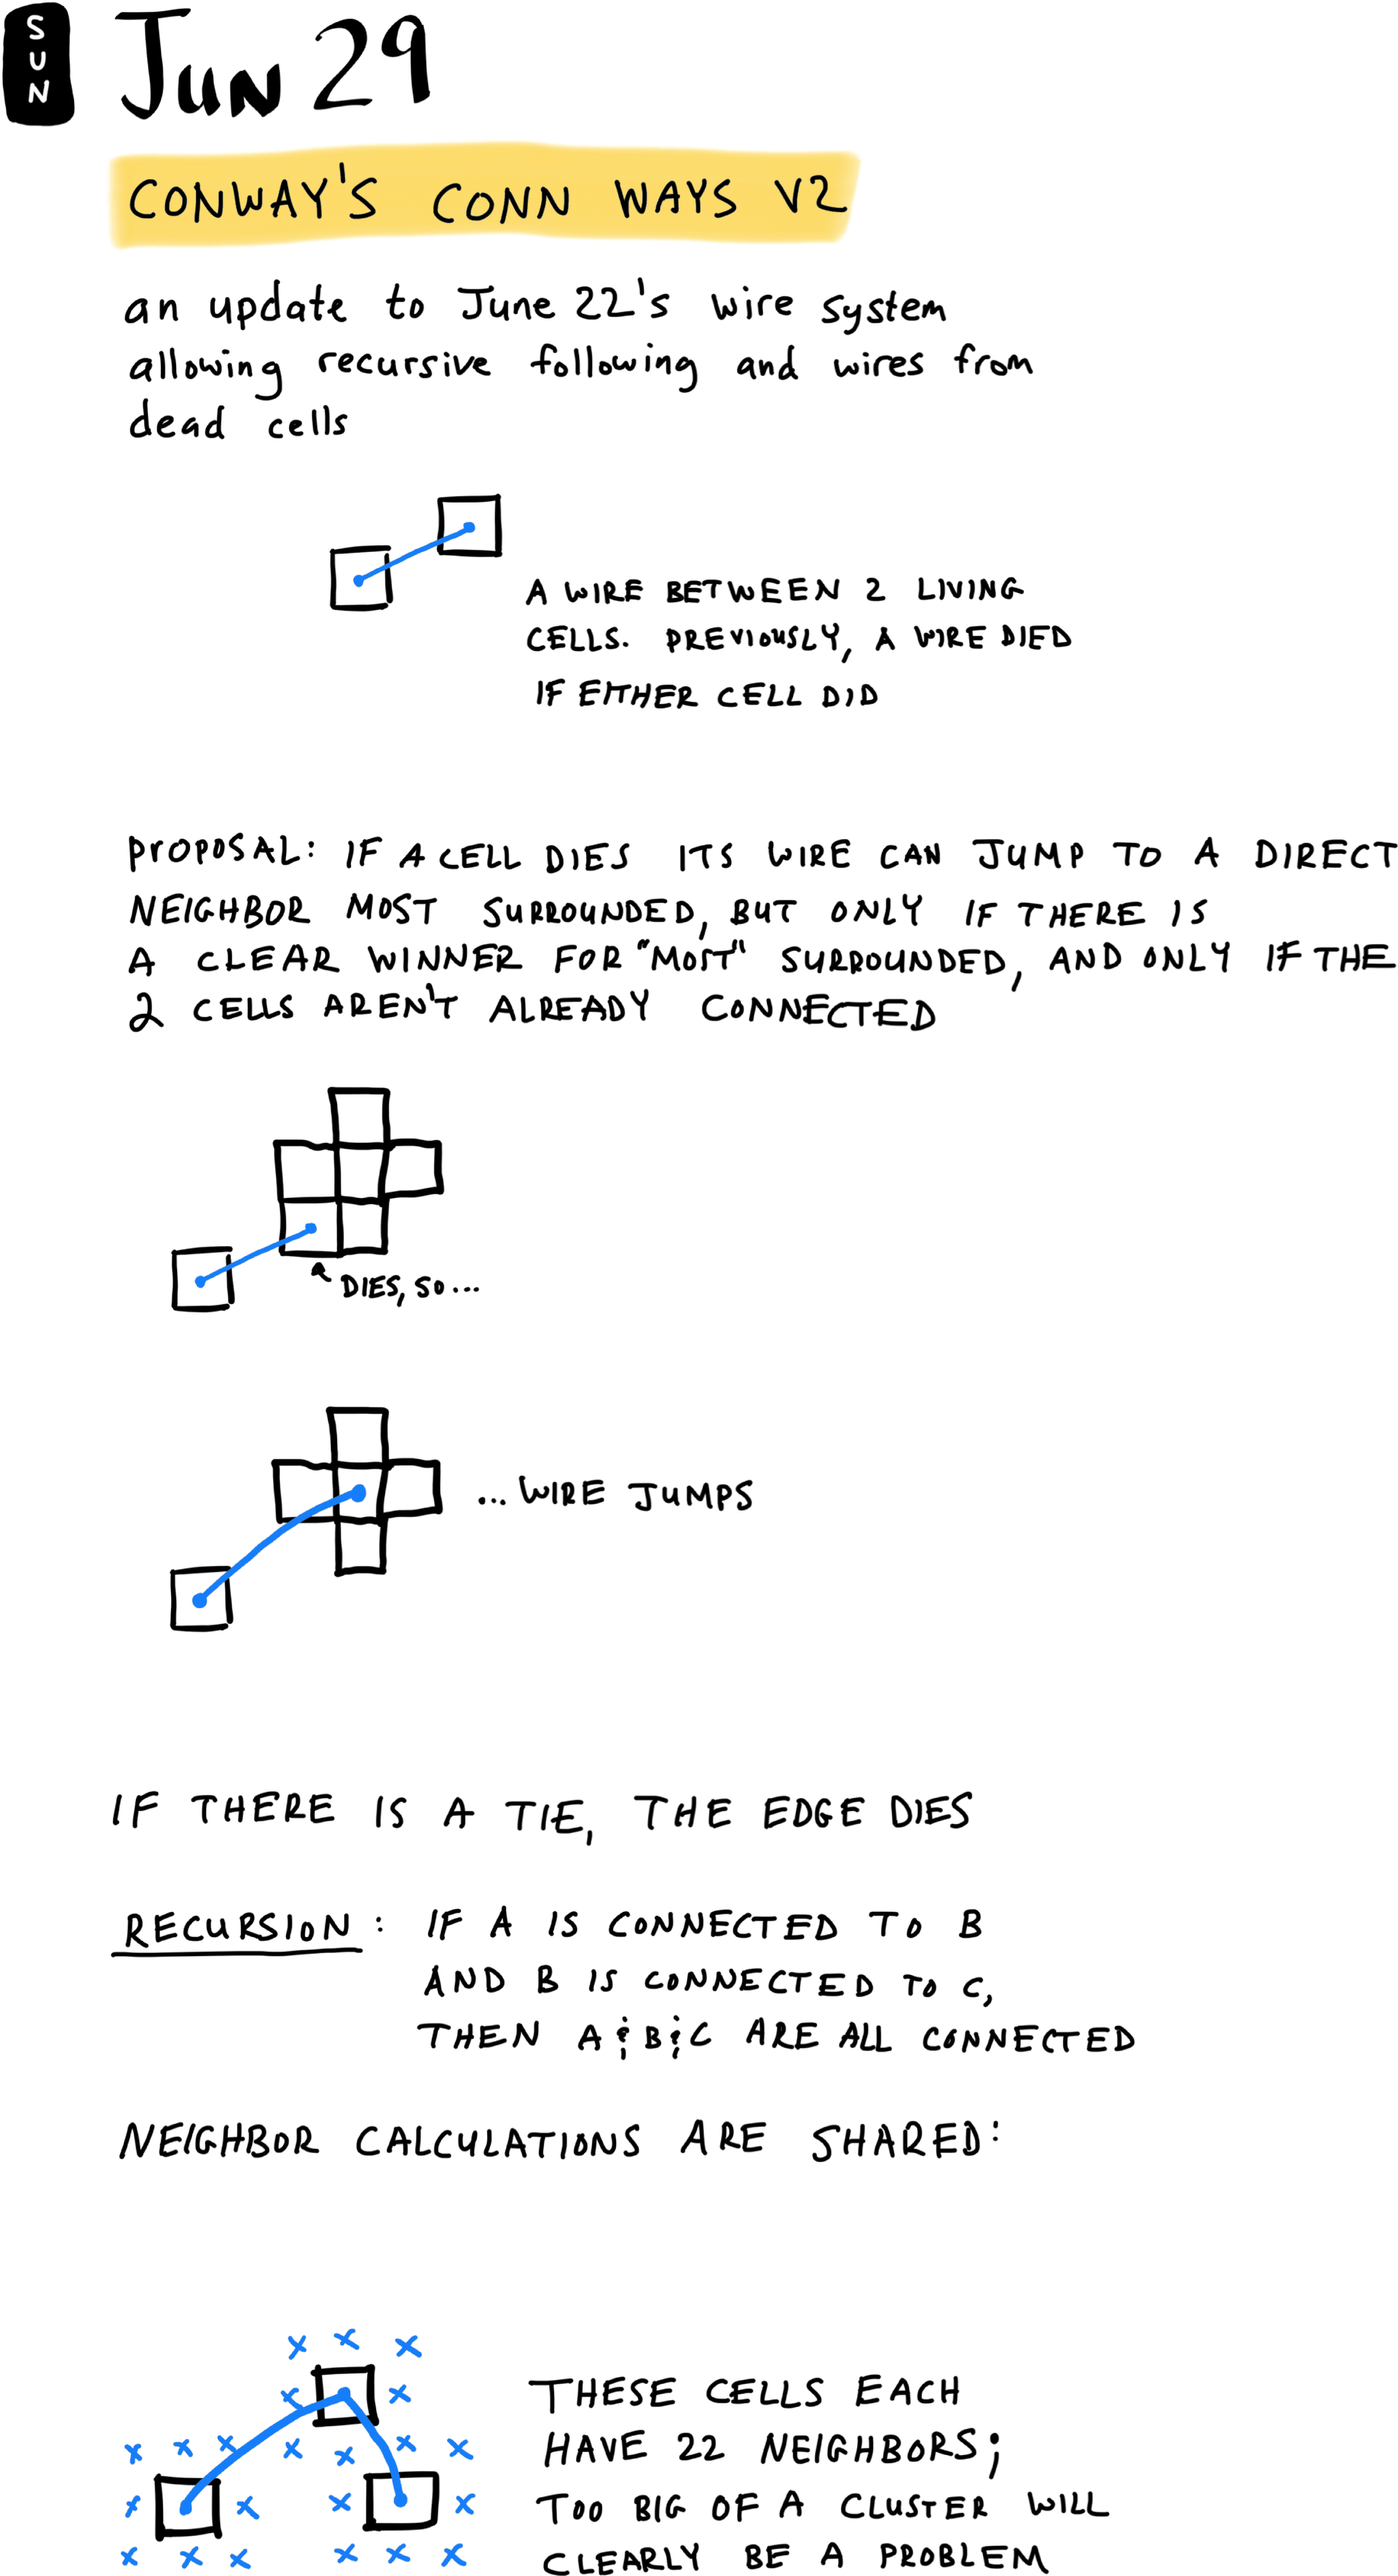 SUN
JUN 29
CONWAY'S CONN WAYS V2
an update to June 22's wire system
allowing recursive following and wires from
dead cells
A WIRE BETWEEN 2 LIVING
CELLS. PREVIOUSLY, A WIRE DIED
IF EITHER CELL DID
PROPOSAL: IF A CELL DIES ITS WIRE CAN JUMP TO A DIRECT
NEIGHBOR MOST SURROUNDED, BUT ONLY IF THERE IS
A CLEAR WINNER FOR "MOST" SURROUNDED, AND ONLY IF THE
2 CELLS AREN'T ALREADY CONNECTED
DIES, SO...
...WIRE JUMPS
IF THERE IS A TIE, THE EDGE DIES
RECURSION: IF A IS CONNECTED TO B
AND B IS CONNECTED TO C,
THEN A & B & C ARE ALL CONNECTED
NEIGHBOR CALCULATIONS ARE SHARED:
THESE CELLS EACH
HAVE 22 NEIGHBORS;
TOO BIG OF A CLUSTER WILL
CLEARLY BE A PROBLEM